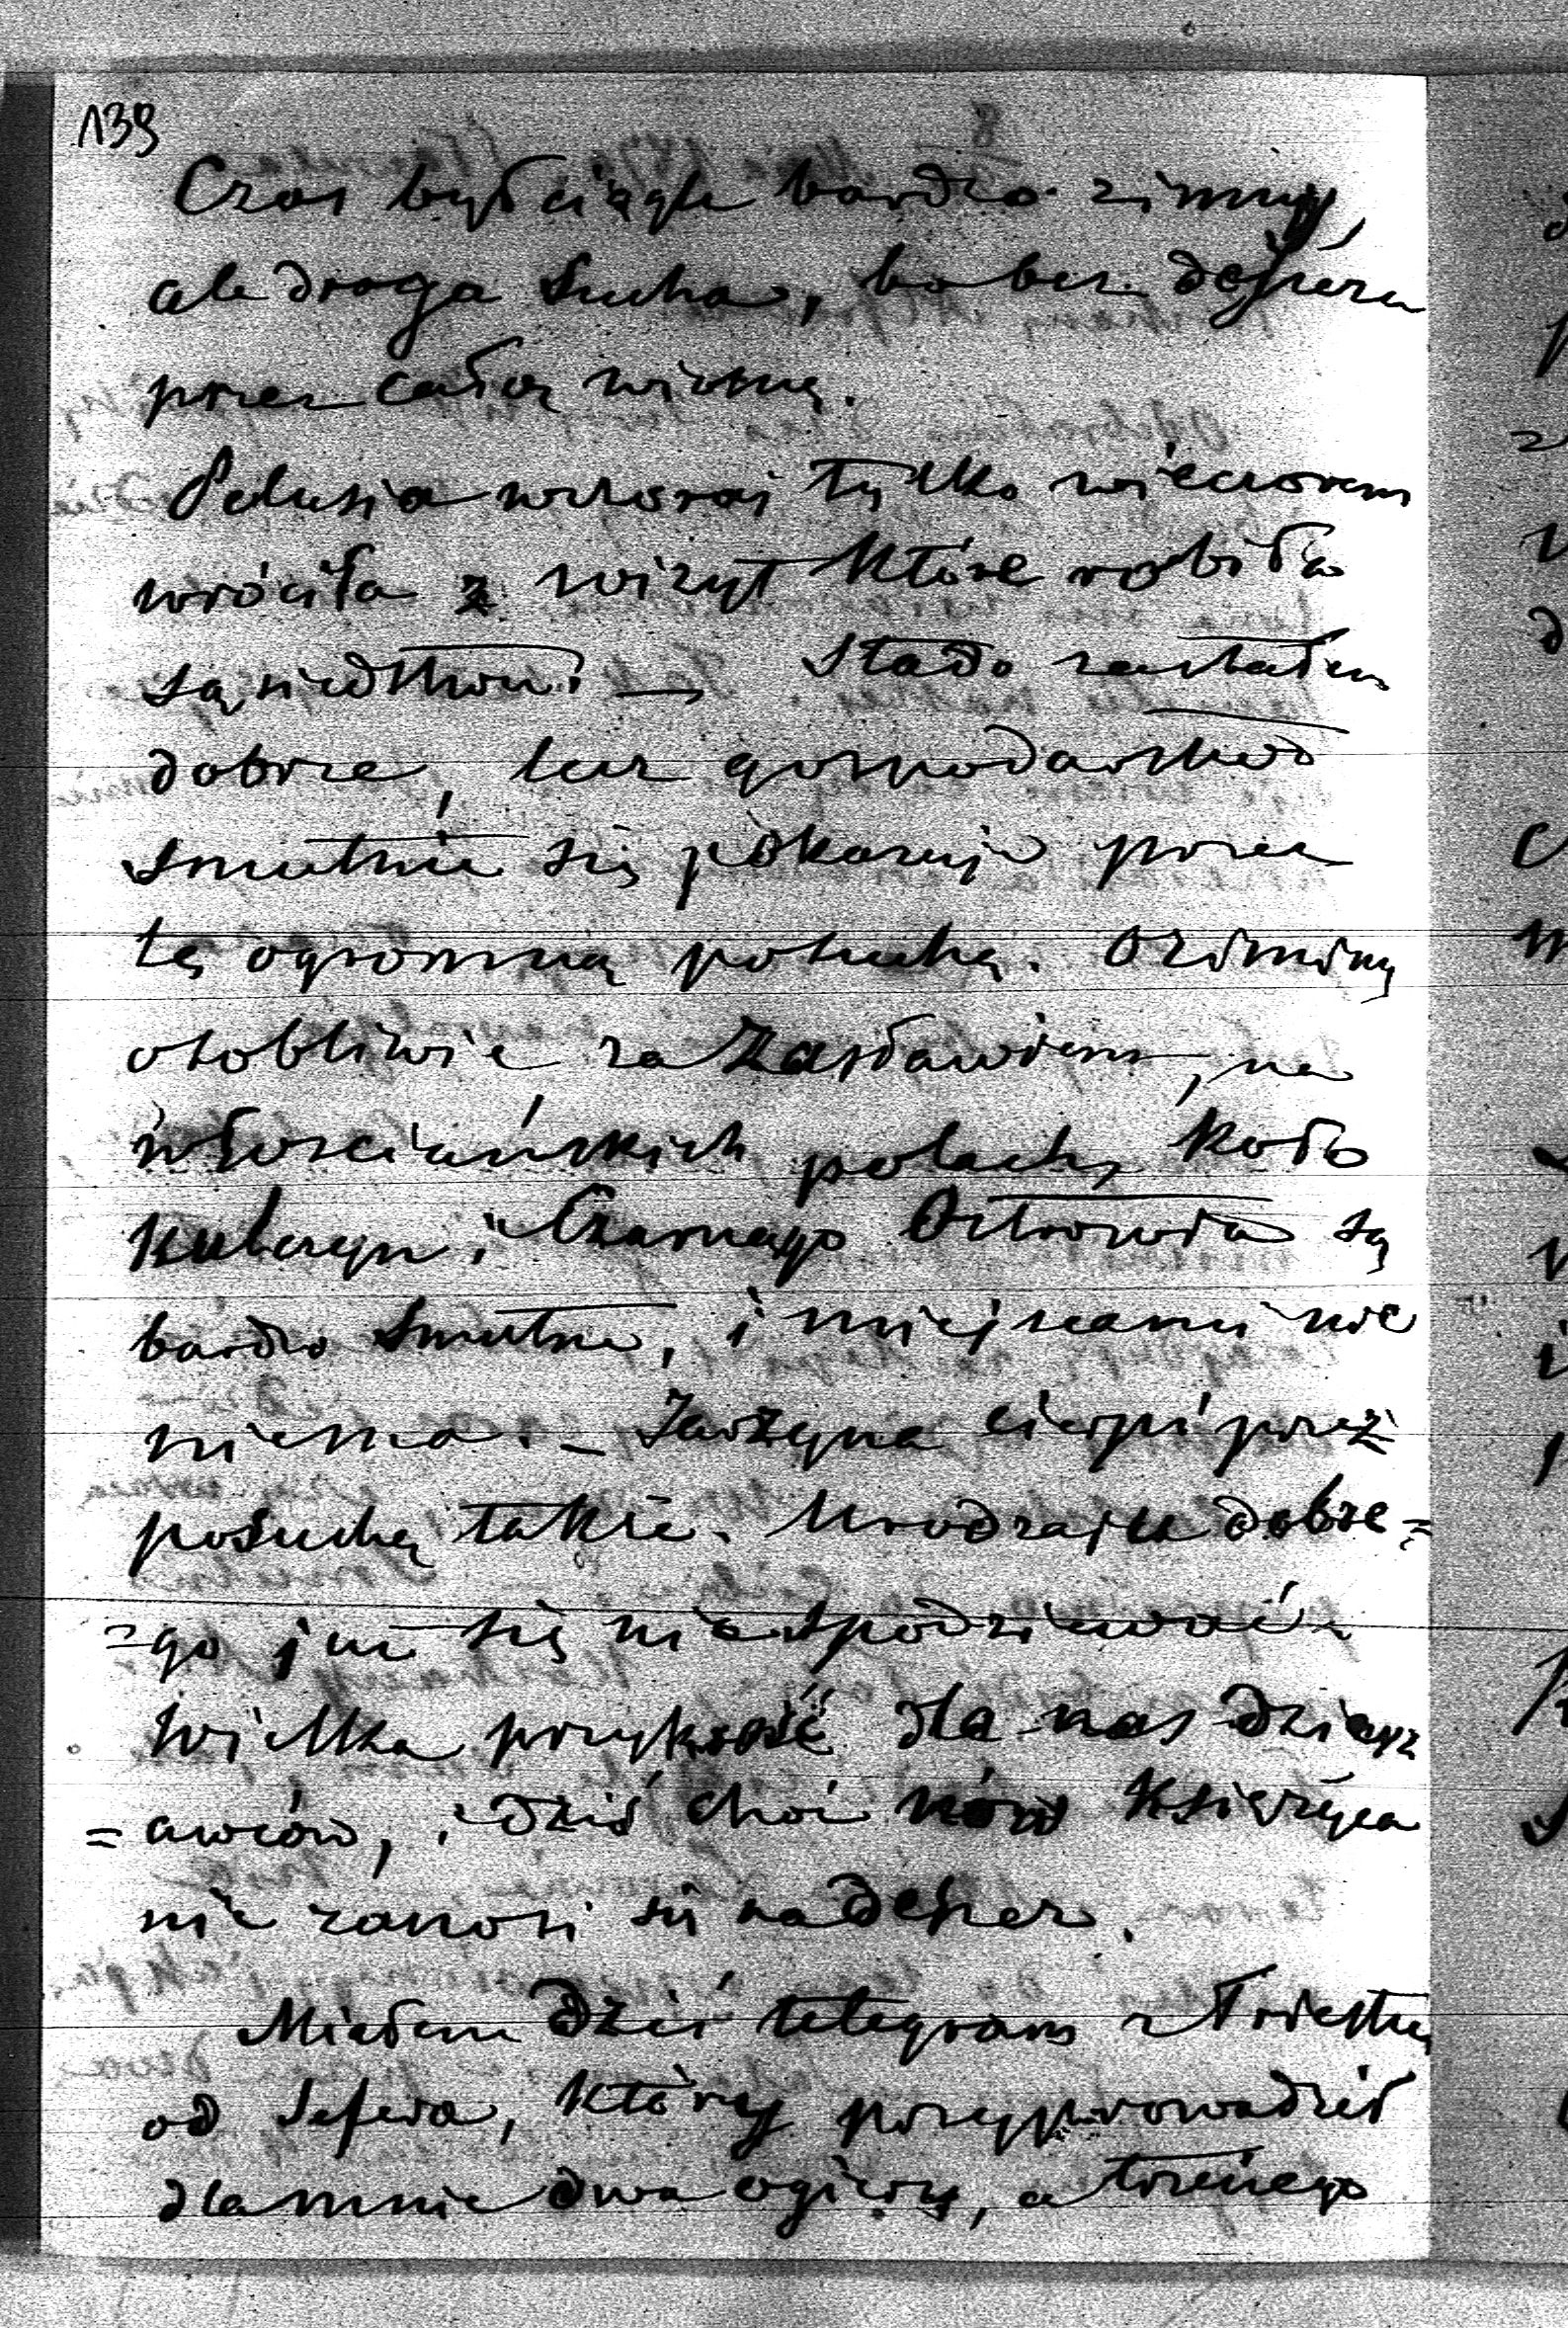 139
Czas był ciągle bardzo zimny,
ale droga sucha, bo bez deszczu
przez całą wiosnę.
Pelusia wczoraj tylko wieczorem
wróciła z wizyt które robiła
sąsiedztwu. — Stado zastałem
dobrze, lecz gospodarstwo
smutnie się pokazuje przez
tę ogromną posuchę. Oziminy
osobliwie za Zasławiem, na
włościańskich polach, koło
Kulczyn i Czarnego Ostrowia są
bardzo smutne, i miejscami nic
niema. — Jarzyna cierpi przez
posuchę także. Urodzaju dobre=
=go już się nie spodziewać.
Wielka przykrość dla nas dzierż
=awców, i dziś choć nów księżyca
nie zanosi się na deszcz.
Miałem dziś telegram z Triestu
od Sefera, który przyprowadził
dla mnie dwa ogiery, a trzeciego